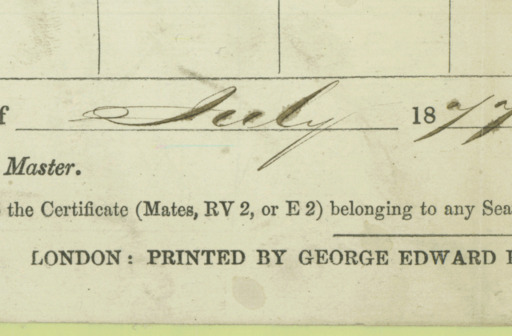 f July 1877
Master.
the Certificate (Mates, RV 2, or E 2) belonging to any Sea
LONDON: PRINTED BY GEORGE EDWARD